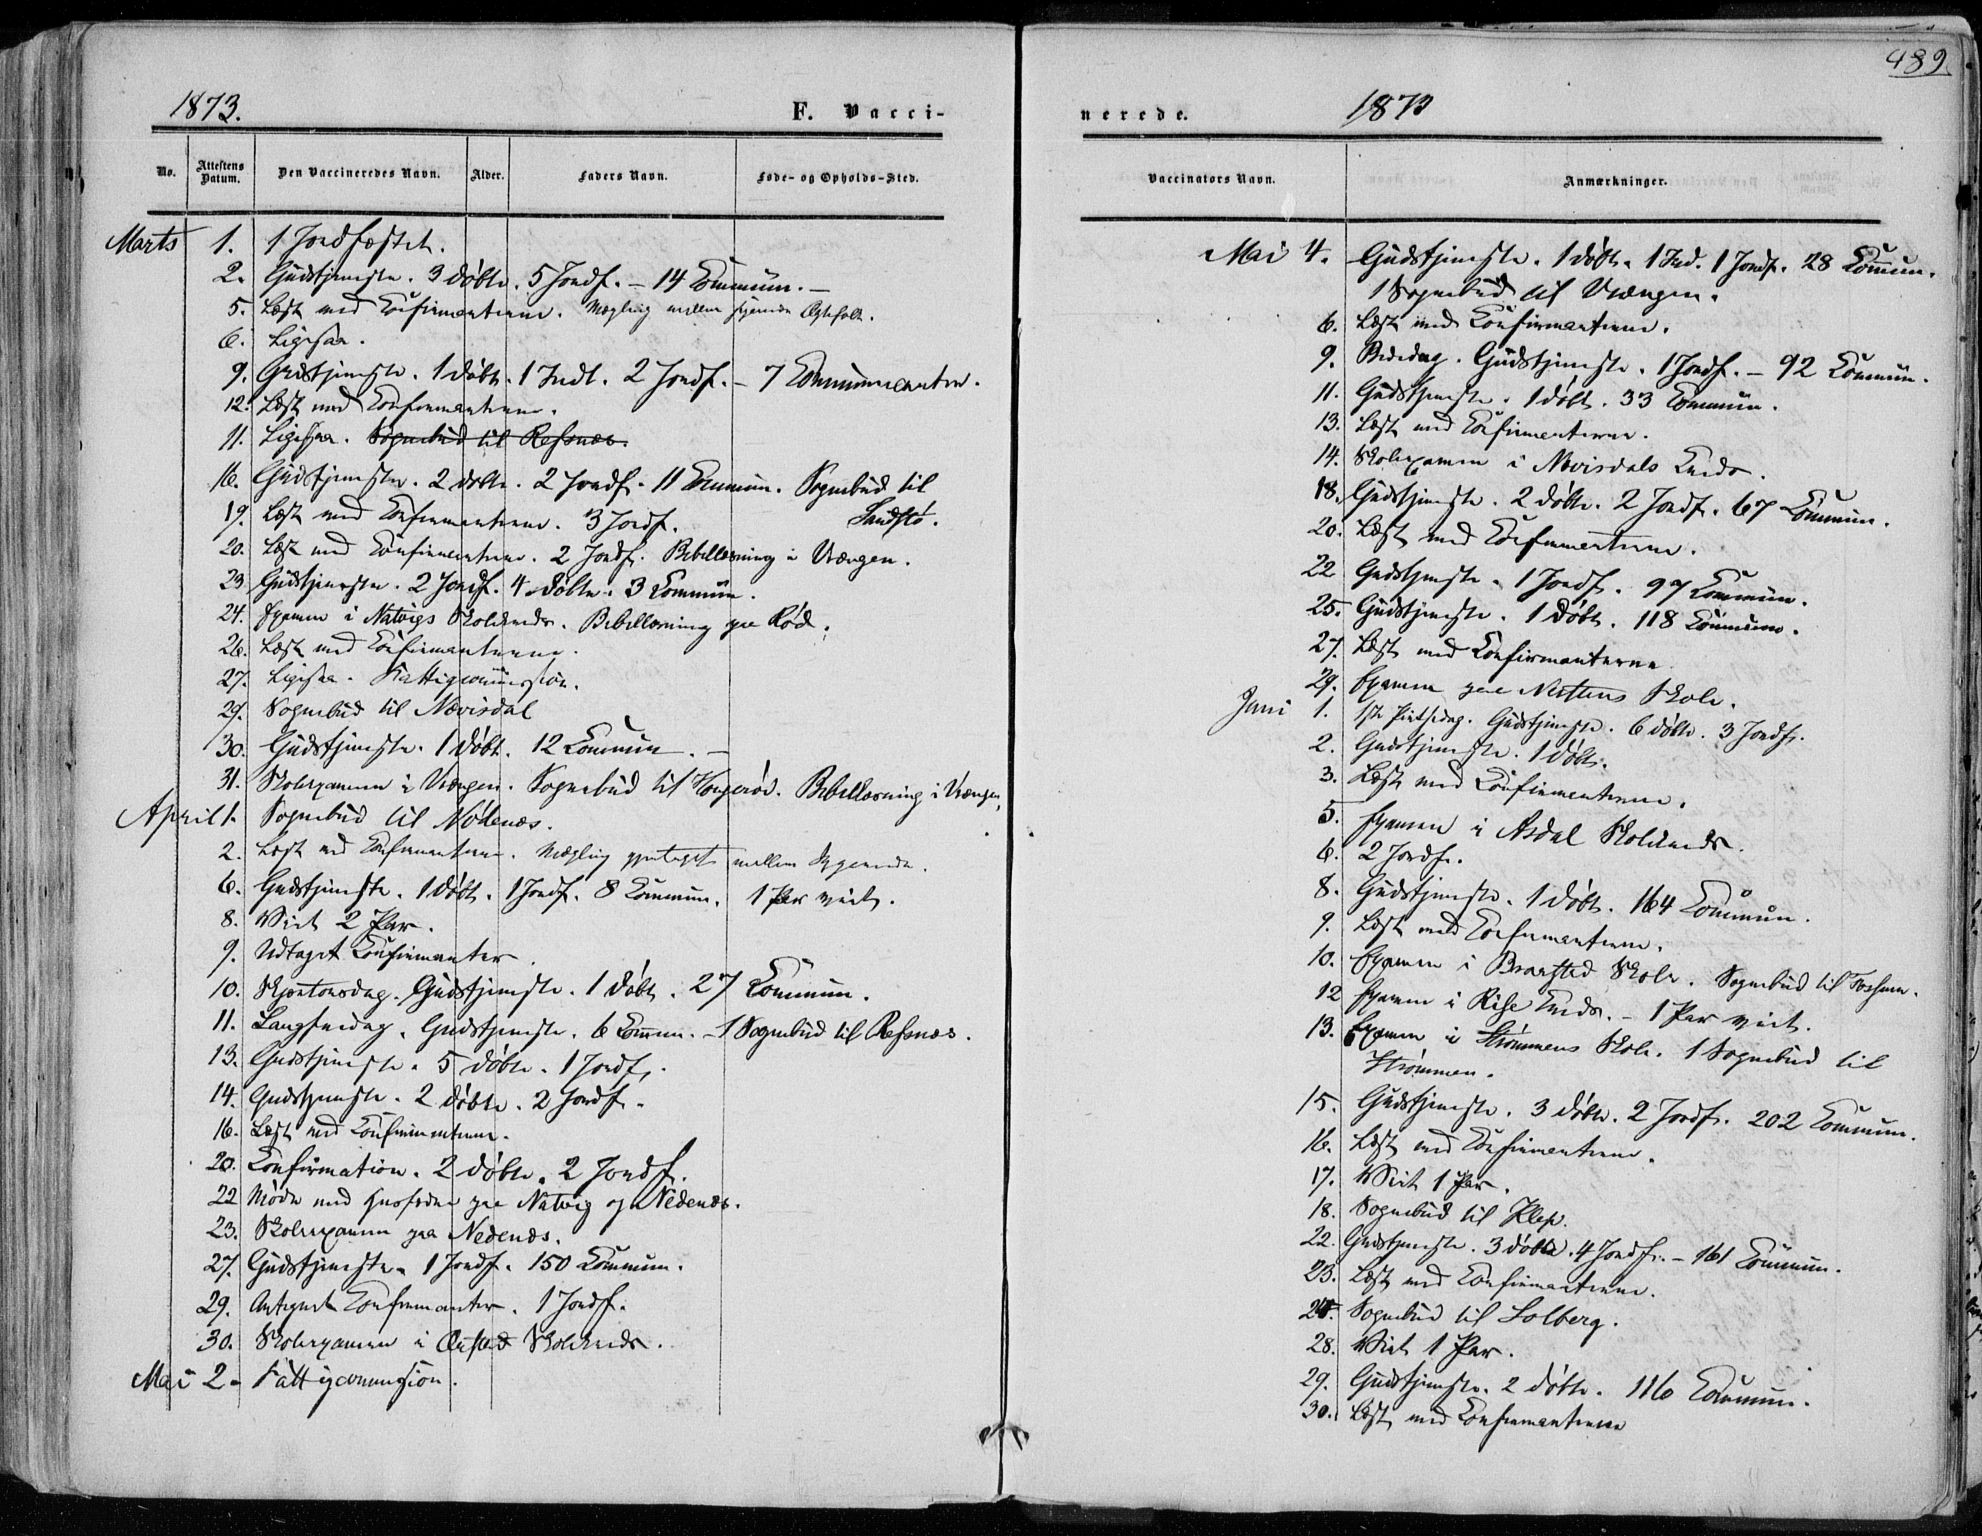 489
1873.
F. Vacci-
nerede.
1873
No.
Attestens Datum.
Den Vaccineredes Navn.
Alder.
Faders Navn.
Føde- og Opholds-Sted.
Vaccinators Navn.
Anmærkninger.
Marts 1. 1 Jordfæstet.
2. Gudstjeneste. 3 døbte. 5 Jordf. - 14 Commun. -
5. Læst med Confirmanterne. Mægling mellem Ægtefolk.
6. Ligesaa.
9. Gudstjeneste. 1 døbt. 1 Indl. 2 Jordf. - 7 Communicanter.
12. Læst med Confirmanterne.
11. Ligesaa. Sognebud til Refsnæs.
16. Gudstjeneste. 2 døbte. 2 Jordf. 11 Commun. Sognebud til
Sandstø.
19. Læst med Confirmanterne. 3 Jordf.
20. Læst med Confirmanterne. 2 Jordf. Bibellæsning i Vrængen.
23. Gudstjeneste. 2 Jordf. 4 døbte. 3 Commun.
24. Examen i Natvigs Skolekreds. Bibellæsning paa Rød.
26. Læst med Confirmanterne.
27. Ligesaa. Fattigcommission.
29. Sognebud til Nævisdal
30. Gudstjeneste. 1 døbt. 12 Commun. -
31. Skolexamen i Vrængen. Sognebud til Bibellæsning i Vrængen.
April 1. Sognebud til Nedenæs.
2. Læst med Confirmanterne. Mægling mellem
6. Gudstjeneste. 1 døbt. 1 Jordf. 8 Commun. 1 Par viet.
8. Viet 2 Par.
9. Udtaget Confirmanter.
10. Skjærtorsdag. Gudstjeneste. 1 døbt. 27 Commun.
11. Langfredag. Gudstjeneste. 6 Commun. - 1 Sognebud til Refsnæs.
13. Gudstjeneste. 5 døbte. 1 Jordf.
14. Gudstjeneste. 2 døbte. 2 Jordf.
16. Læst med Confirmanterne.
20. Confirmation. 2 døbte. 2 Jordf.
22 Møde med Husfædre paa Natvig og Nedenæs.
23. Skolexamen paa Nedenæs.
27. Gudstjeneste. 1 Jordf. 150 Commun.
29. Antegnet Confirmanter. 1 Jordf.
30. Skolexamen i Skolekreds.
Mai 2. Fattigcommission.
Mai 4. Gudstjeneste. 1 døbt. 1 Ind. 1 Jordf. 28 Commun.
1 Sognebud til Vrængen.
6. Læst med Confirmanterne.
9. Bededag. Gudstjeneste. 1 Jordf. - 92 Commun.
11. Gudstjeneste. 1 døbt. 33 Commun.
13. Læst med Confirmanterne.
14. Skolexamen i Nævisdals Kreds.
18. Gudstjeneste. 2 døbte. 2 Jordf. 67 Commun.
20. Læst med Confirmanterne.
22 Gudstjeneste. 1 Jordf. 97 Commun.
25. Gudstjeneste. 1 døbt. 118 Commun.
27. Læst med Confirmanterne
29. Examen paa Skole.
Juni 1. 1ste Pintsedag. Gudstjeneste. 6 døbte. 3 Jordf.
2. Gudstjeneste. 1 døbt.
3. Læst med Confirmanterne.
5. Examen i Asdal Skolekreds.
6. 2 Jordf.
8. Gudstjeneste. 1 døbt. 164 Commun.
9. Læst med Confirmanterne.
10. Examen i Braastad Skole. Sognebud til
12 Examen i Rise Kreds. - 1 Par viet.
13. Examen i Strømmens Skole. 1 Sognebud til
Strømmen.
15. Gudstjeneste. 3 døbte. 2 Jordf. 202 Commun.
16. Læst med Confirmanterne.
17. Viet 1 Par.
18. Sognebud til Klep.
22. Gudstjeneste. 3 døbte. 4 Jordf. - 161 Commun.
23. Læst med Confirmanterne.
Sognebud til Solberg.
28. Viet 1 Par.
29. Gudstjeneste. 2 døbte. 116 Commun.
30. Læst med Confirmanterne